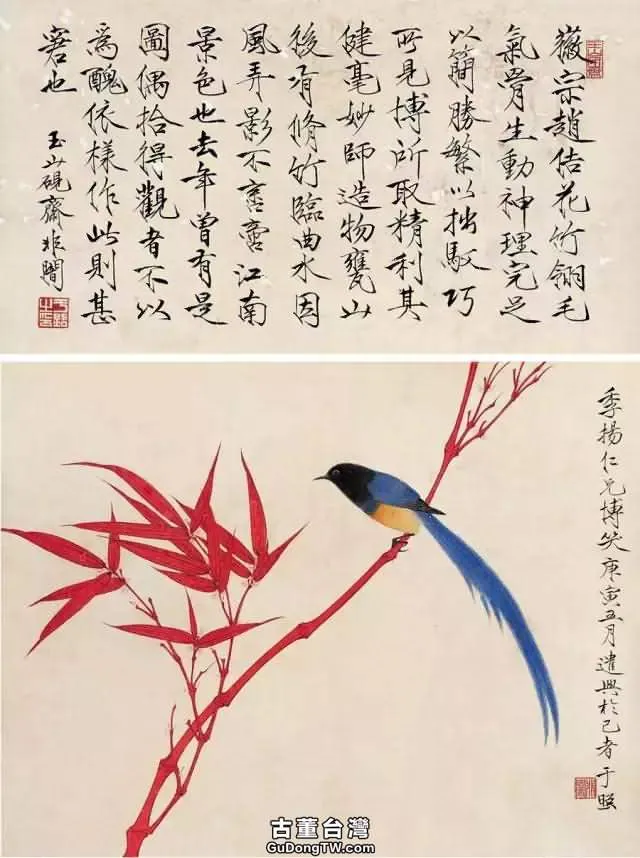 徽宗趙佶花竹翎毛
氣骨生動神理完足
以簡勝繁以拙馭巧
所見博所取精利其
健毫妙師造物甕山
後有脩竹臨曲水因
風弄影不啻江南
景色也去年曾有是
圖偶拾得觀者不以
為醜依樣作此則甚
窘也 玉山硯齋非闇
季揚仁兄博笑庚寅五月遣興於己者于照
古董台灣
GuDongTW.com